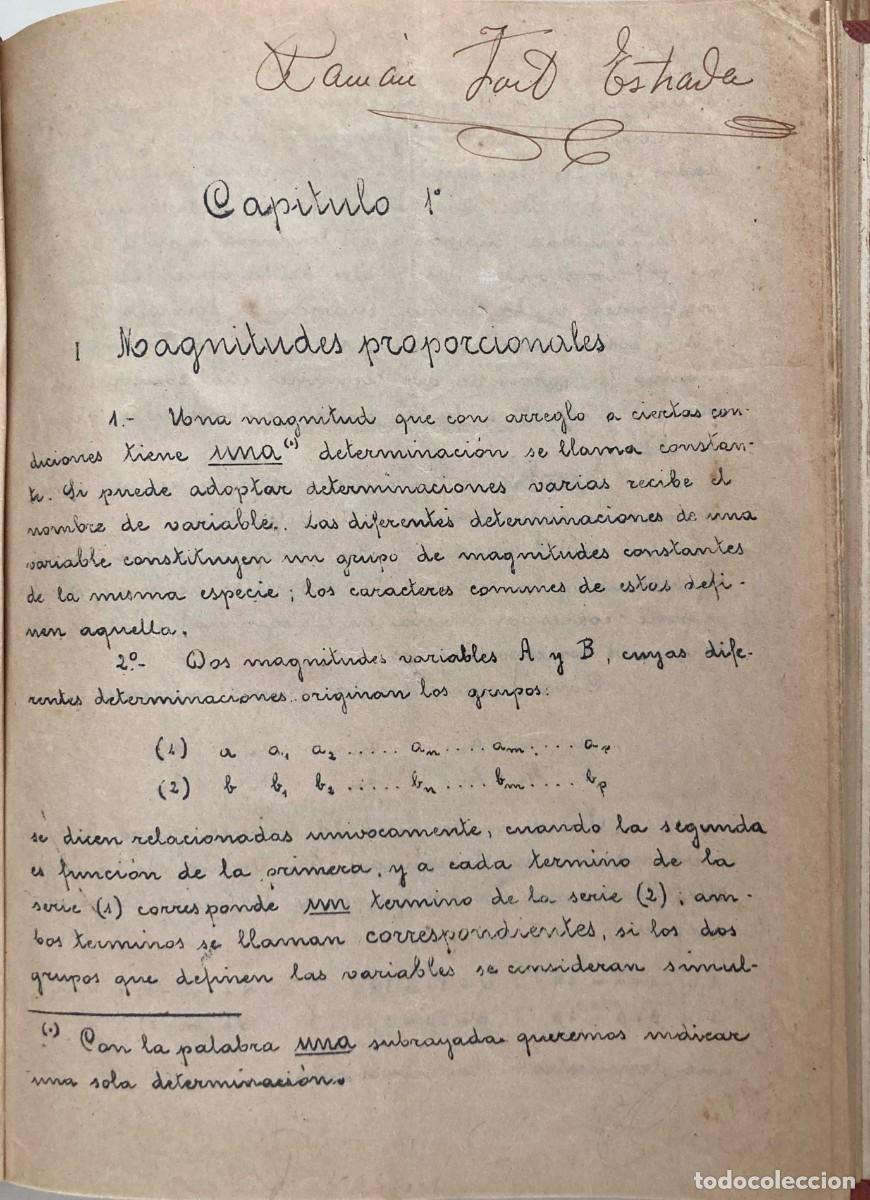 Ramón Fort Estrada
Capitulo 1º
I Magnitudes proporcionales
1.- Una magnitud que con arreglo a ciertas con-
diciones tiene una(·) determinación se llama constan-
te. Si puede adoptar determinaciones varias recibe el
nombre de variable. Las diferentes determinaciones de una
variable constituyen un grupo de magnitudes constantes
de la misma especie; los caracteres comunes de estas defi-
nen aquella.
2º.- Dos magnitudes variables A y B, cuyas dife-
rentes determinaciones originan los grupos:
(1) a a₁ a₂ ..... aₙ .... aₘ .... aₚ
(2) b b₁ b₂ ..... bₙ .... bₘ .... bₚ
se dicen relacionadas univocamente, cuando la segunda
es función de la primera, y a cada termino de la
serie (1) corresponde un termino de la serie (2); am-
bos terminos se llaman correspondientes, si los dos
grupos que definen las variables se consideran simul-
(·) Con la palabra una subrayada queremos indicar
una sola determinación.
todocoleccion